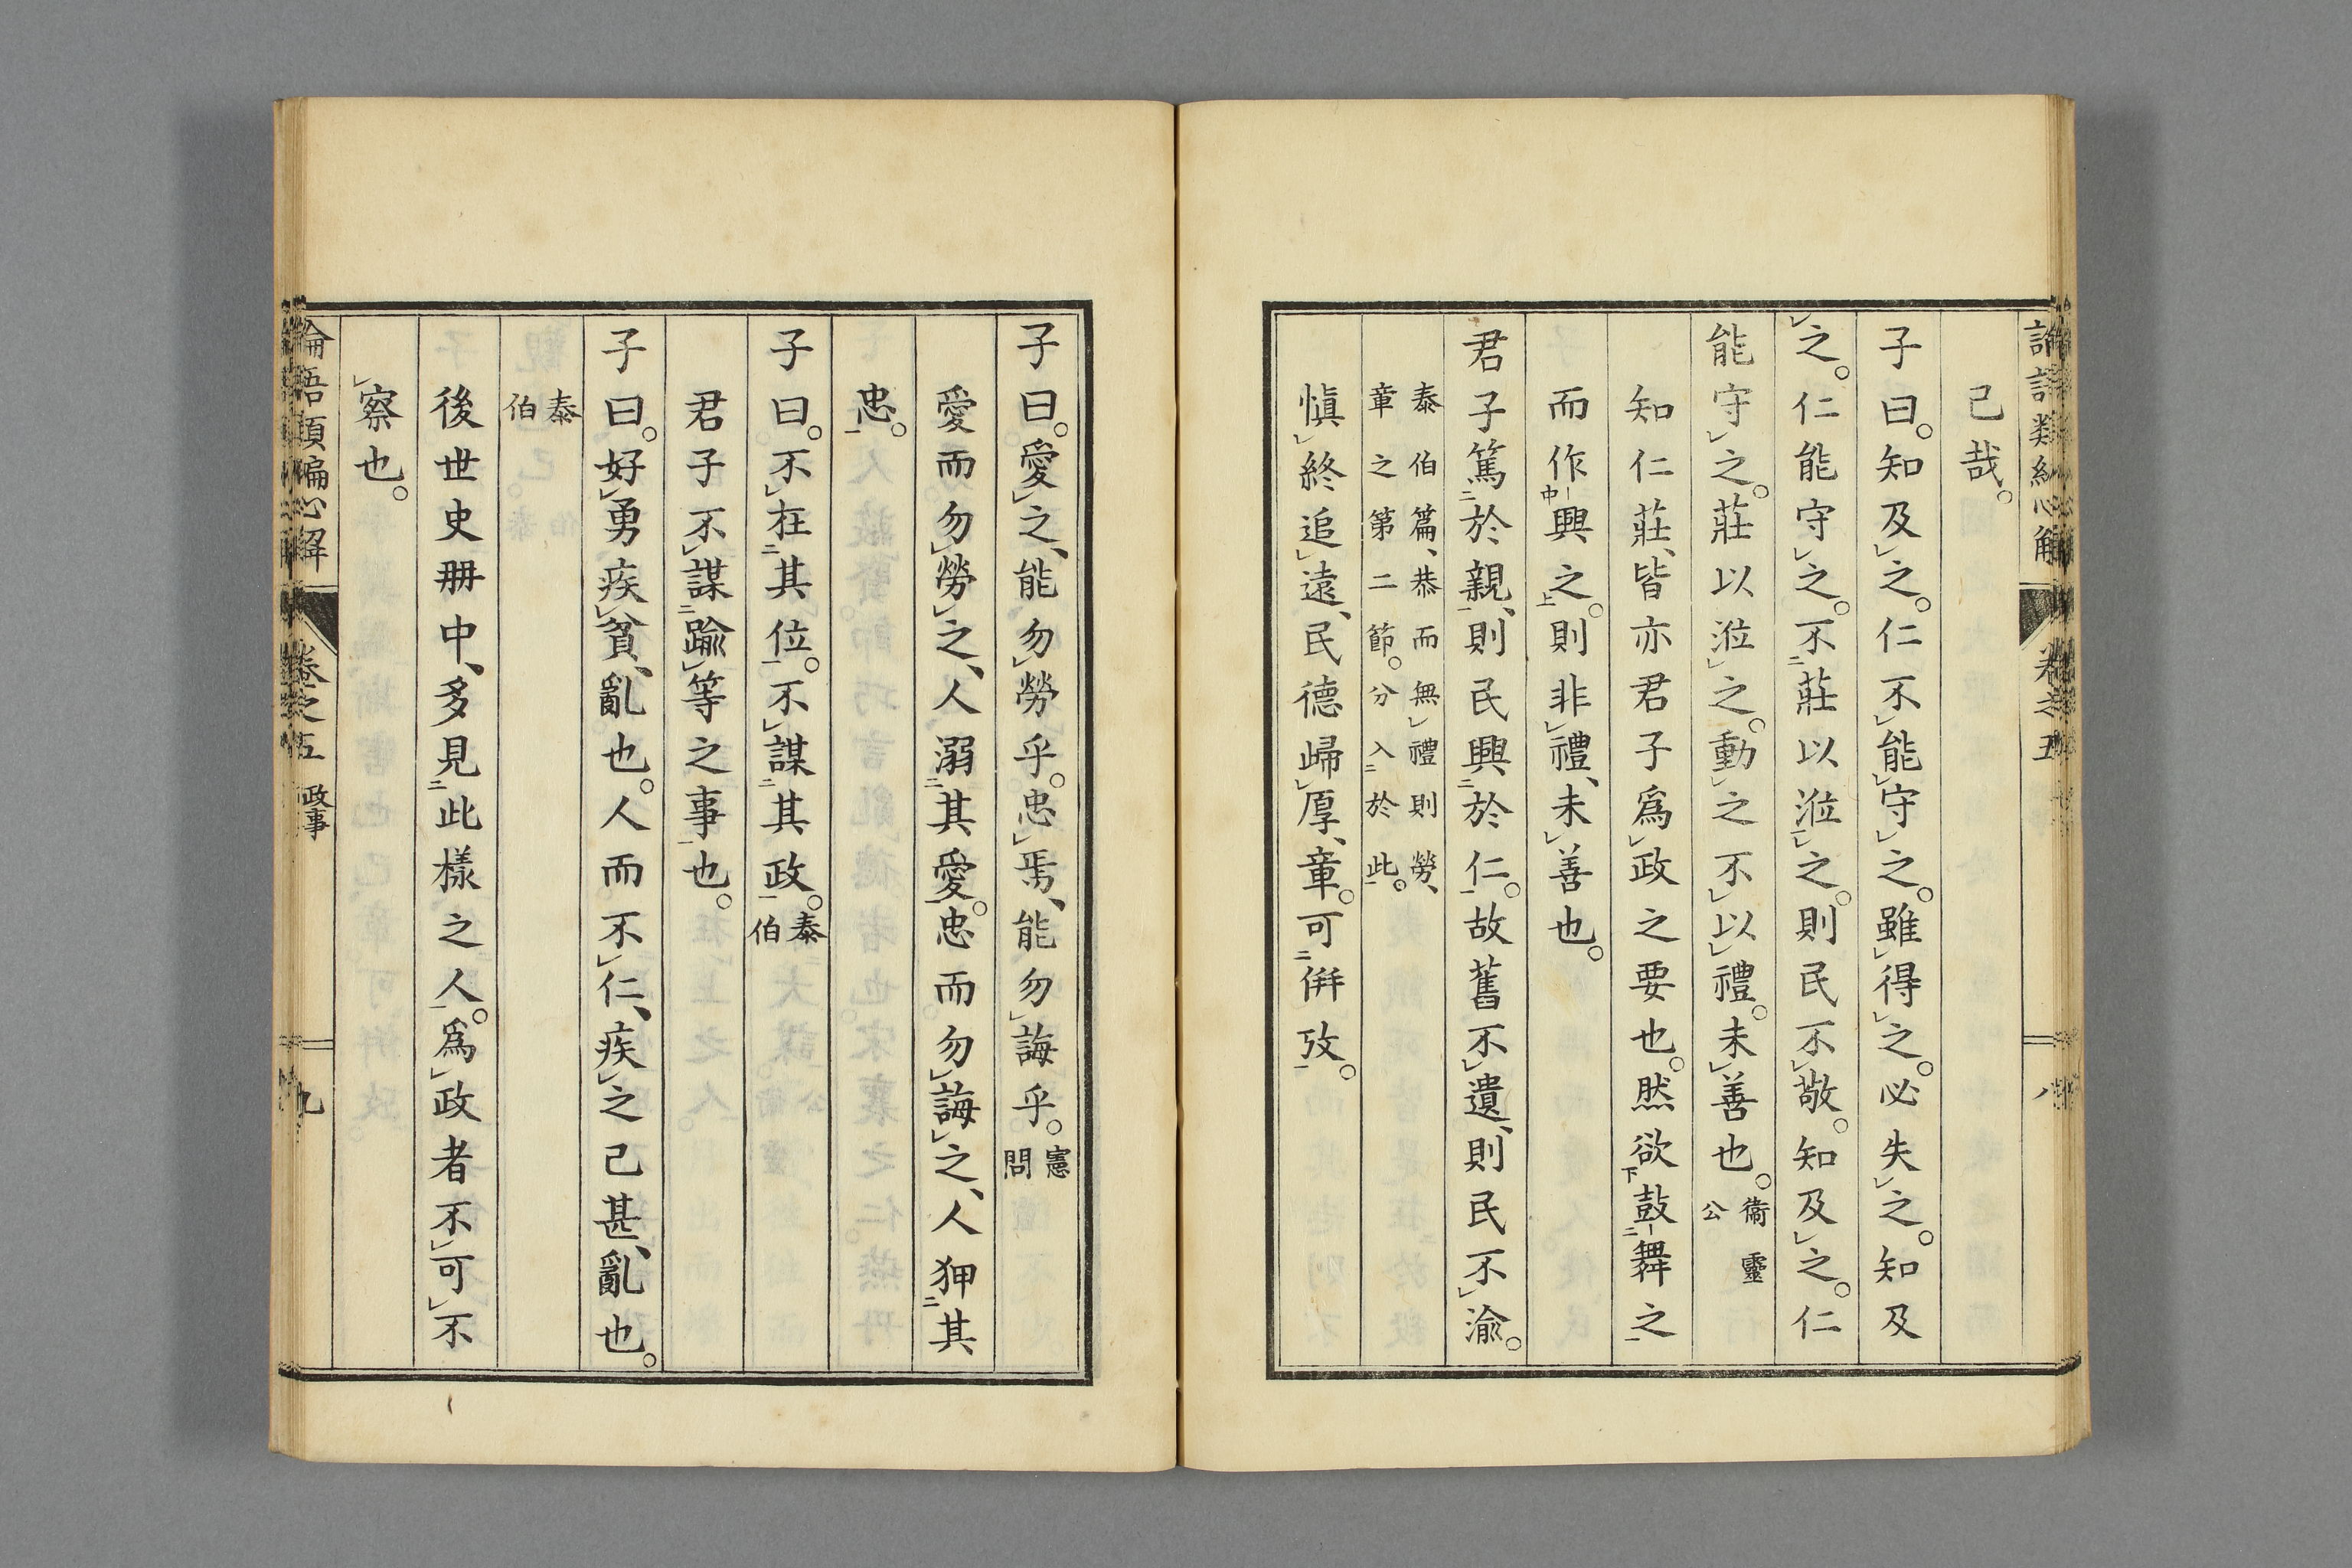 己哉。
子曰。知及之。仁不能守之。雖得之。必失之。知及
之。仁能守之。不莊以涖之。則民不敬。知及之。仁
能守之。莊以涖之。動之不以禮。未善也。衞靈公
知仁莊、皆亦君子爲政之要也。然欲鼓舞之
而作興之。則非禮、未善也。
君子篤於親、則民興於仁。故舊不遺、則民不渝。
泰伯篇、恭而無禮則勞、
章之第二節。分入於此。
愼終追遠、民德歸厚、章。可併攷。
子曰。愛之、能勿勞乎。忠焉、能勿誨乎。憲問
愛而勿勞之、人溺其愛。忠而勿誨之、人狎其
忠。
子曰。不在其位。不謀其政。泰伯
君子不謀踰等之事也。
子曰。好勇疾貧、亂也。人而不仁、疾之已甚、亂也。
泰伯
後世史册中、多見此樣之人。爲政者不可不
察也。
論語類編心解 卷之五 政事 九